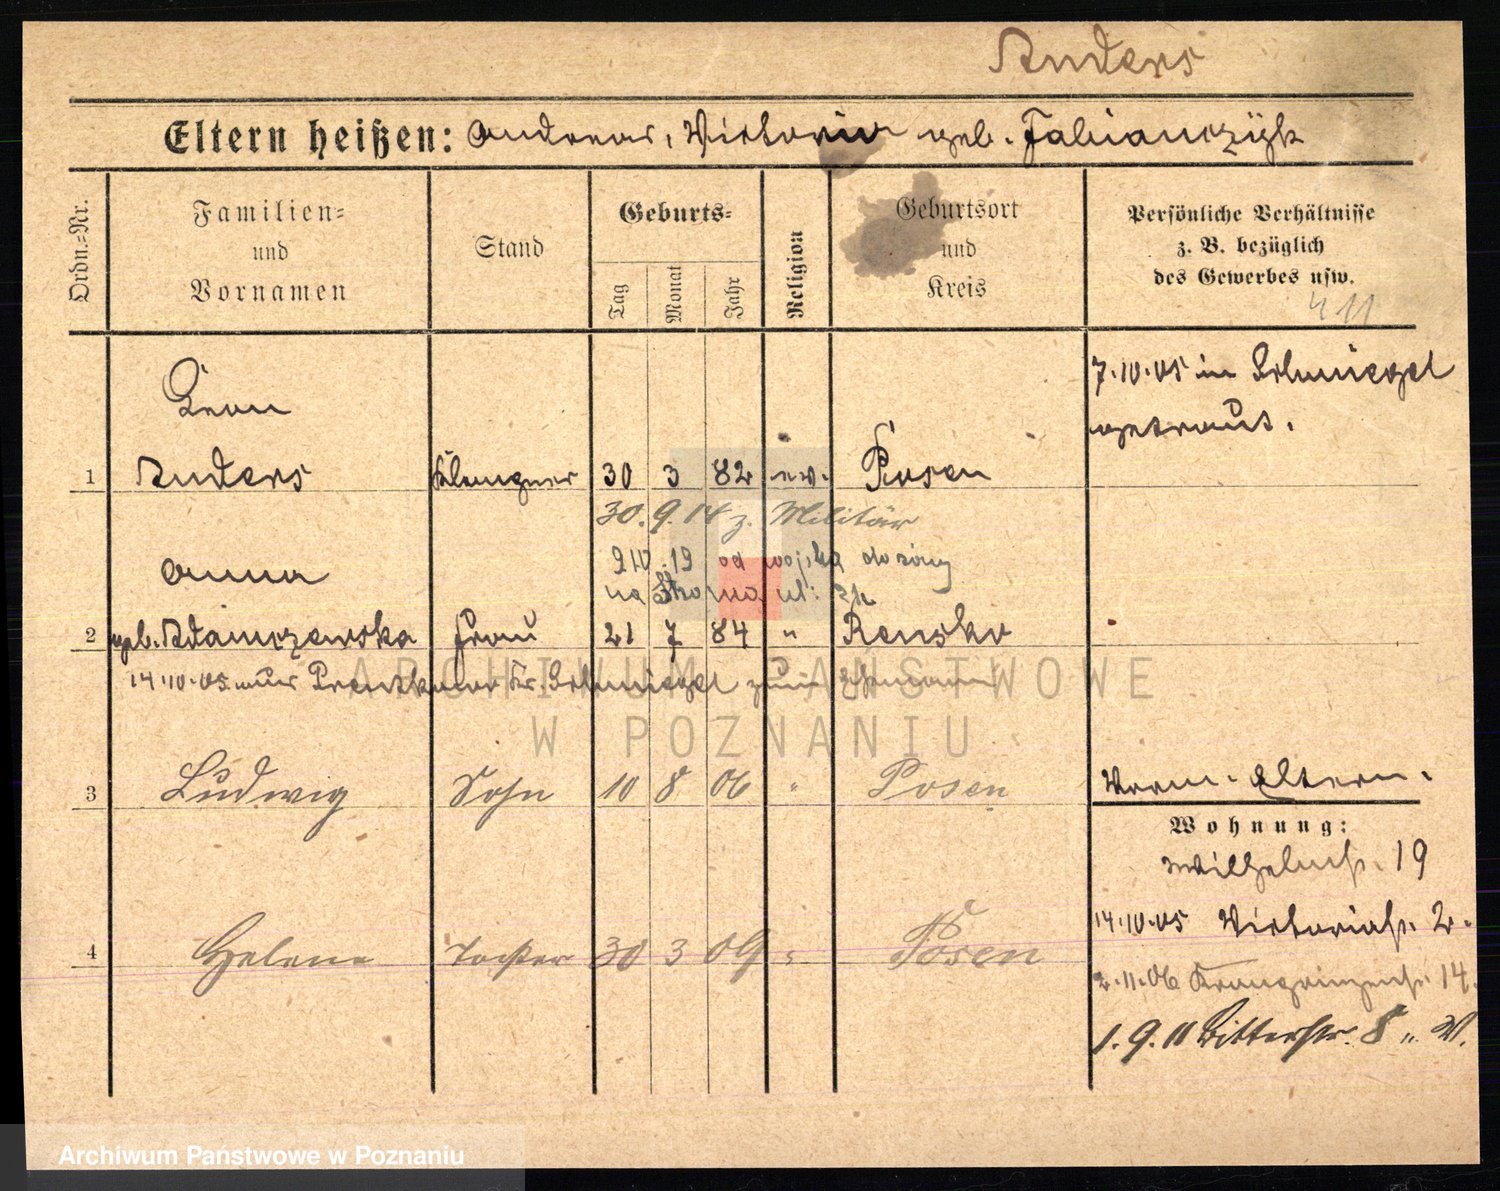 Anders
Eltern heißen: Andreas, Victoria geb. Fabianczyk
Ordn.-Nr.
Familien-
und
Vornamen
Stand
Geburts-
Tag
Monat
Jahr
Religion
Geburtsort
und
Kreis
Persönliche Verhältnisse
z. B. bezüglich
des Gewerbes usw.
411
7.10.05 in Schmiegel
getraut.
Leon
1 Anders Klempner 30 3 82 ev. Posen
30.9.14 z. Militär
210.19 od wojska do żony
na ul:
Anna
2 geb. Adamczewska Frau 21 7 84 " Rensko
14.10.05 aus Kr. Schmiegel zum Ehemann
3 Ludwig Sohn 10 8 06 " Posen
Vorm. Eltern.
Wohnung:
Wilhelmstr. 19
14.10.05 Victoriastr. 2.
4 Helene Tochter 30 3 09 " Posen
2.11.06 Kronprinzenstr. 14.
1.9.11 Ritterstr. 8 W.
ARCHIWUM PAŃSTWOWE
W POZNANIU
Archiwum Państwowe w Poznaniu